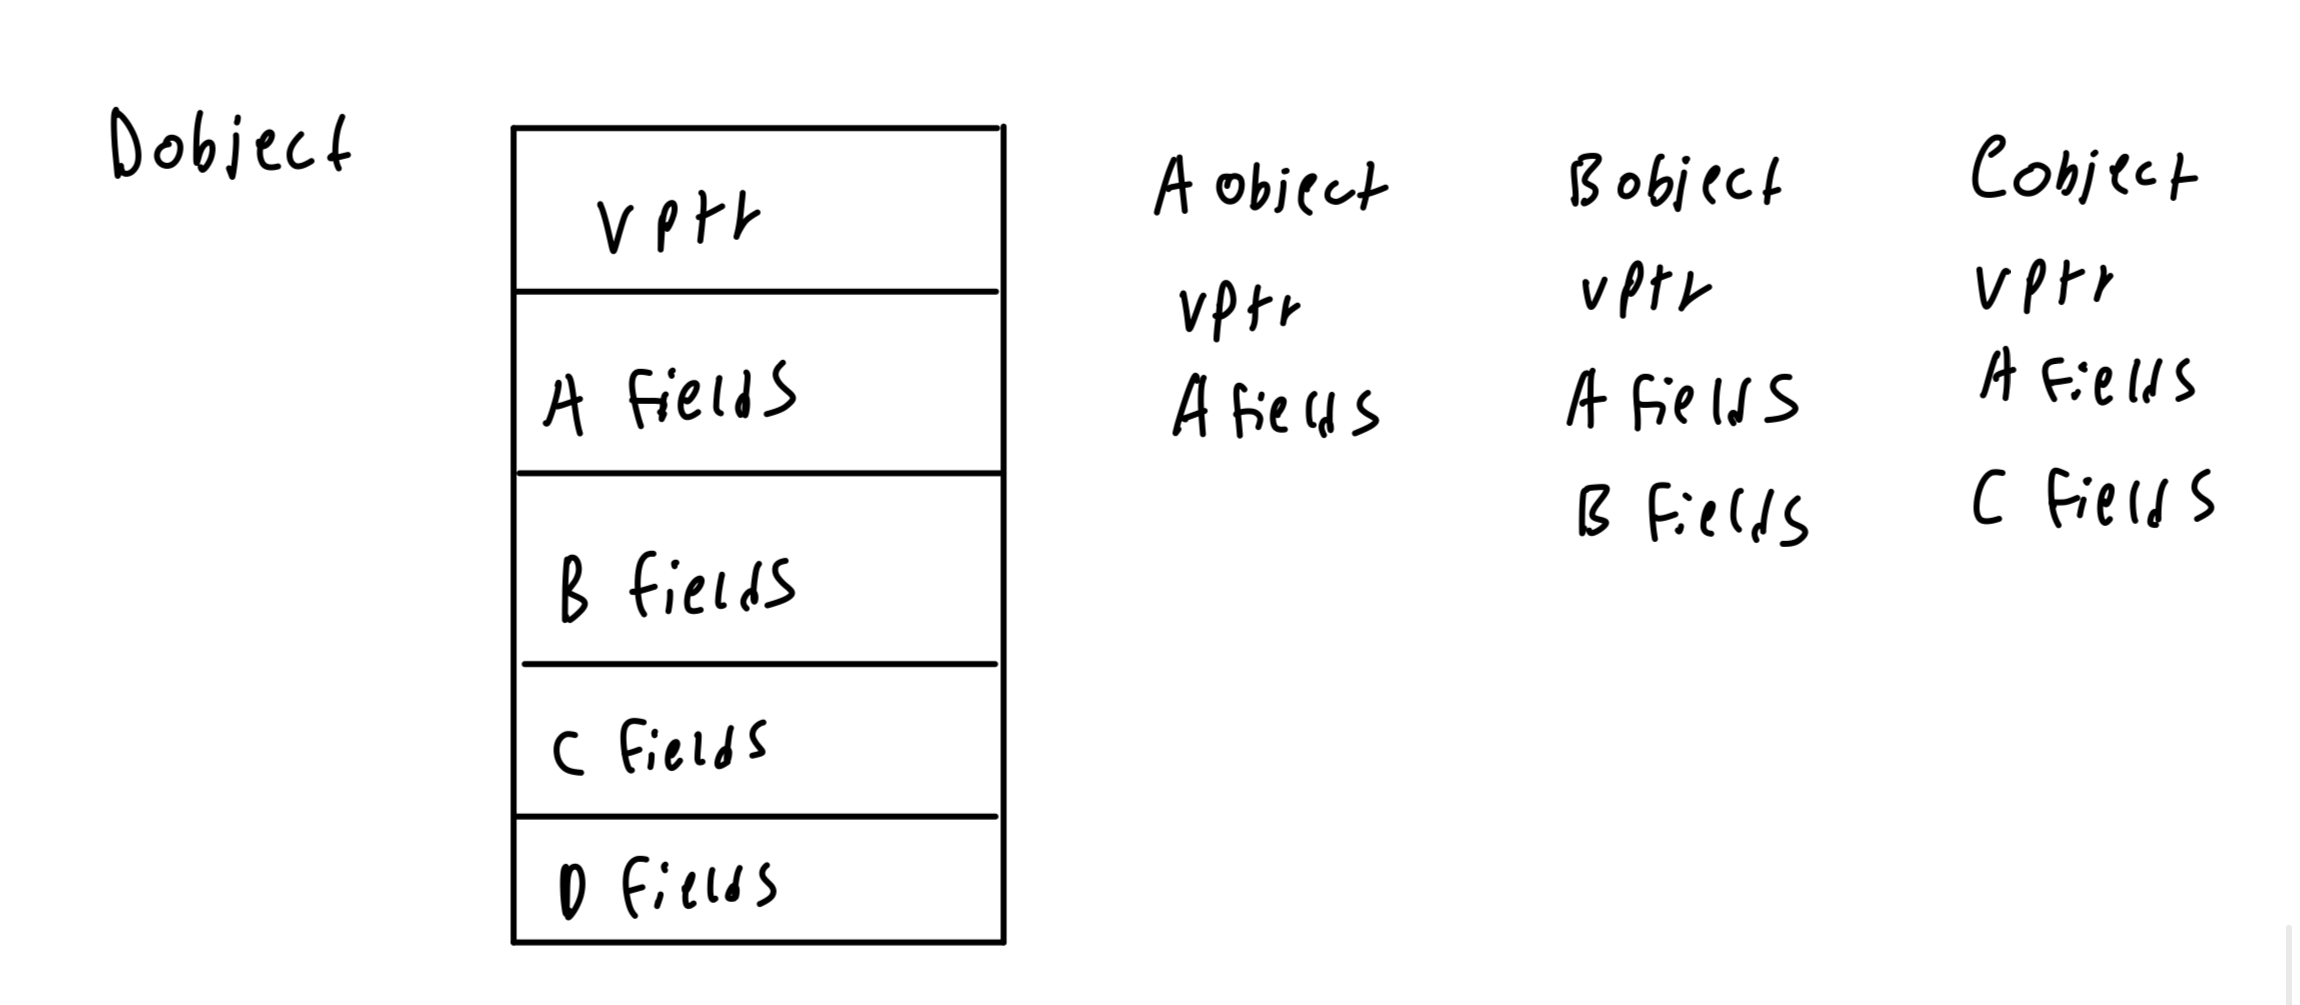 Dobject
vptr
A fields
B fields
C fields
D fields
A object
vptr
A fields
B object
vptr
A fields
B fields
Cobject
vptr
A fields
C fields